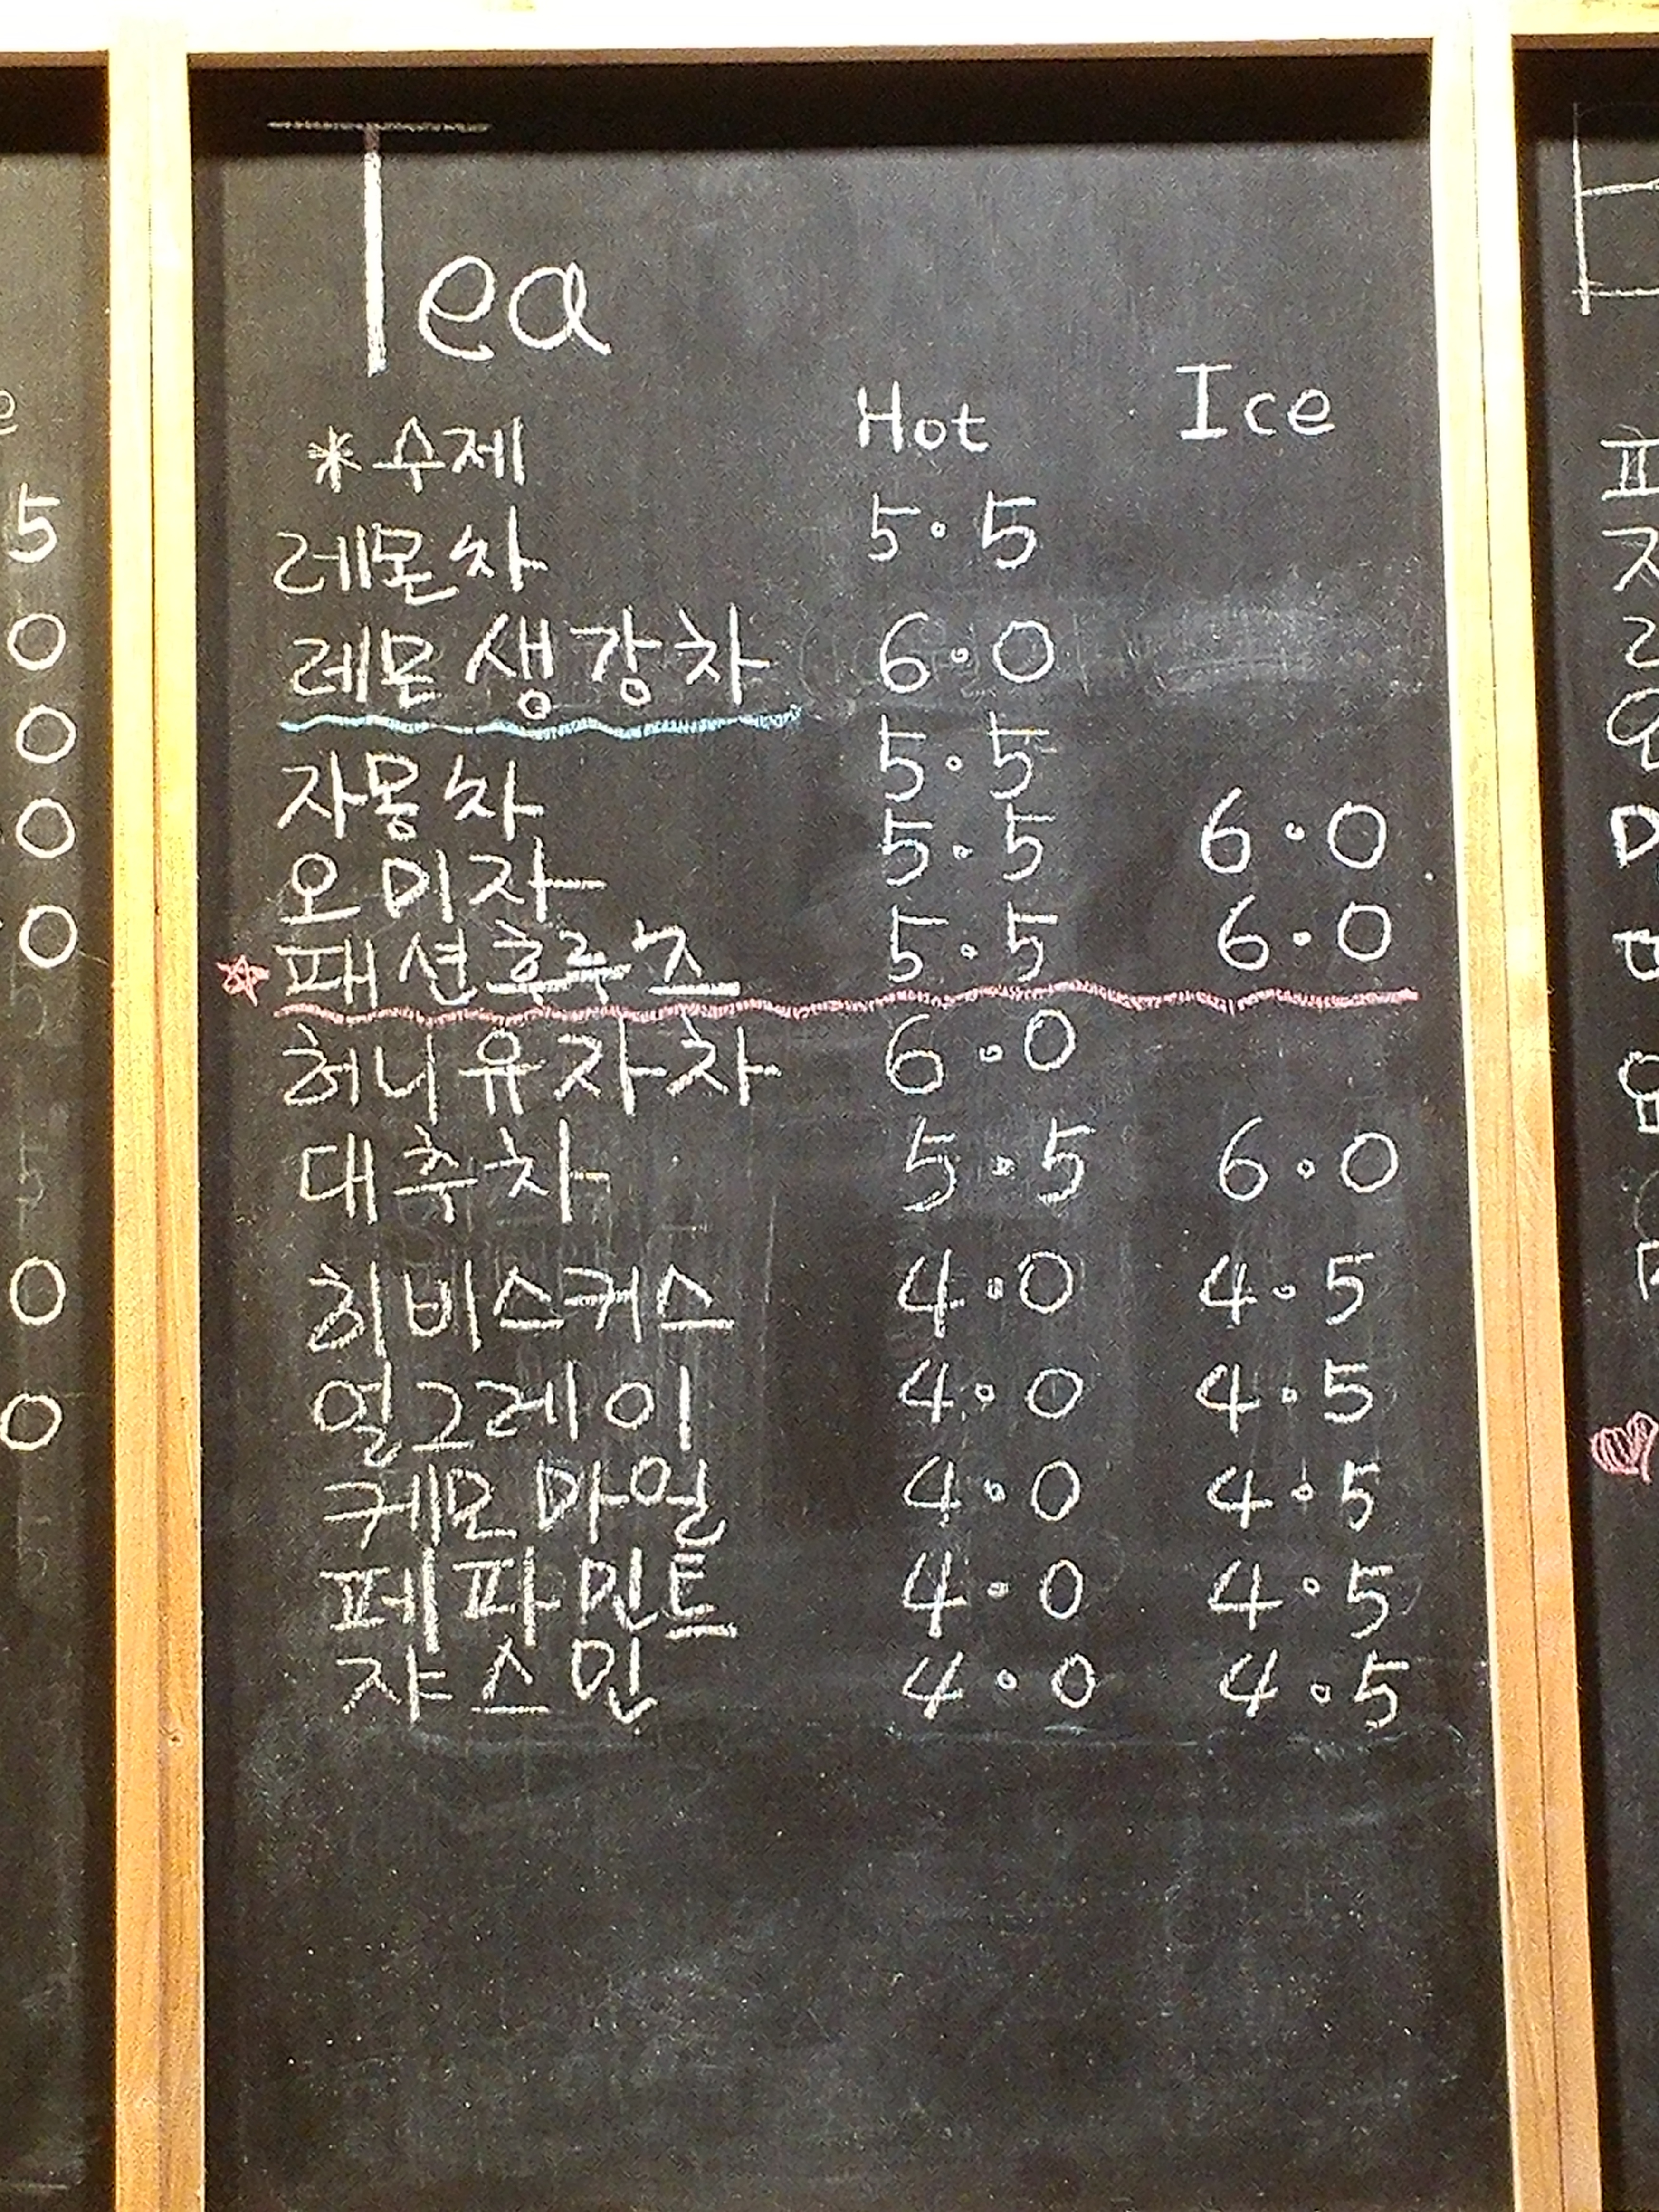 Tea
*수제 Hot Ice
레몬차 5.5
레몬생강차 6.0
자몽차 5.5
오미자 5.5 6.0
☆패션후루츠 5.5 6.0
허니유자차 6.0
대추차 5.5 6.0
히비스커스 4.0 4.5
얼그레이 4.0 4.5
케모마일 4.0 4.5
페파민트 4.0 4.5
쟈스민 4.0 4.5